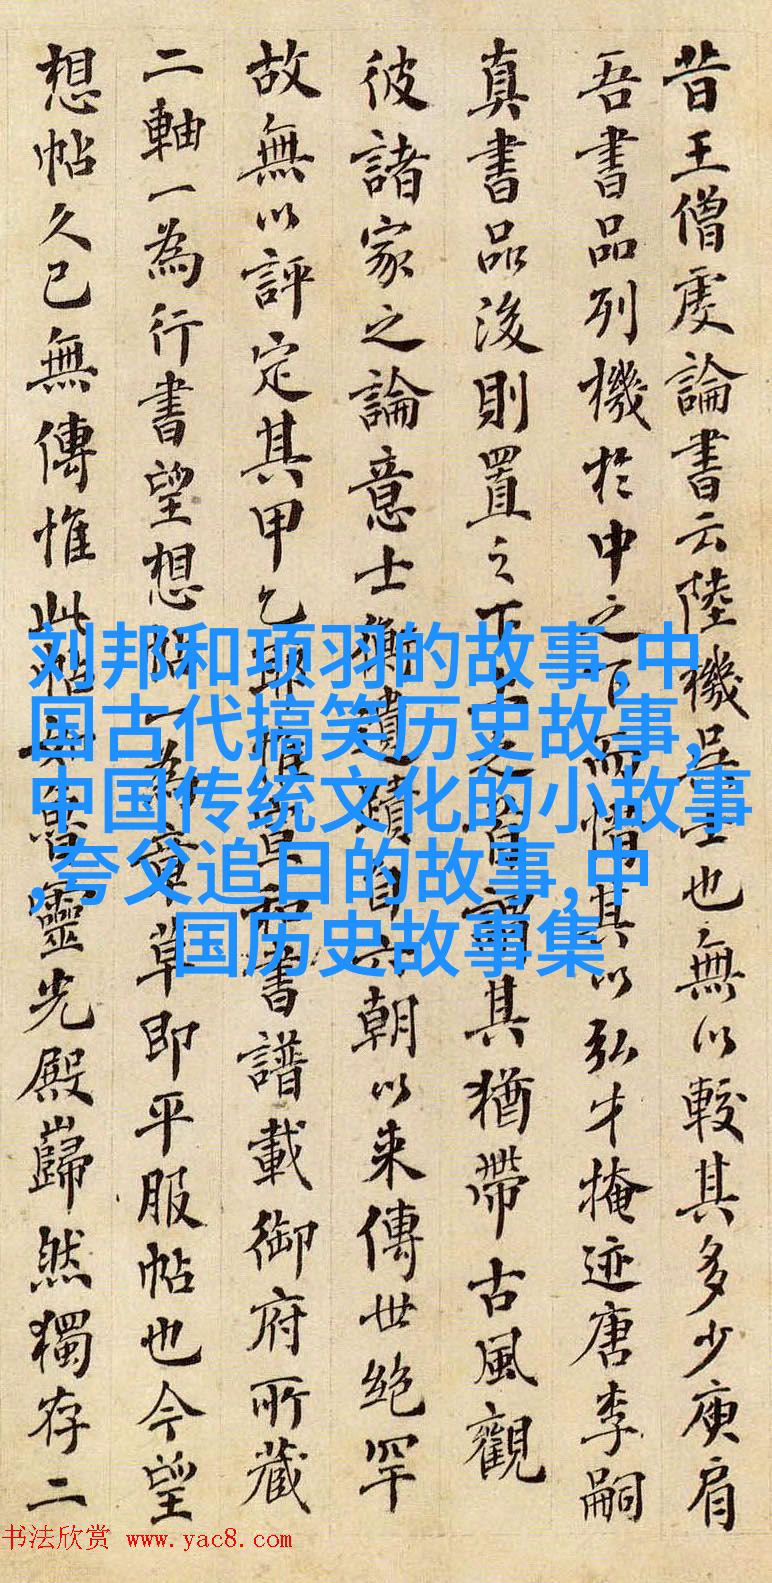 昔王僧虔論書云陸機吳士也無以較其多少庾肩
吾書品列機於中之下而惜其以弘才掩迹唐李嗣
真書品後則置之下上之首謂其猶帶古風觀
彼諸家之論意士衡遺蹟自六朝以来傳世絶罕
故無以評定其甲乙耳惟宣和書譜載御府所藏
二軸一為行書望想帖一為章草即平服帖也今望
想帖久已無傳惟此帖如魯靈光殿巋然獨存二
刘邦和项羽的故事,中
国古代搞笑历史故事,
中国传统文化的小故事
,夸父追日的故事,中
国历史故事集
书法欣赏 www.yac8.com